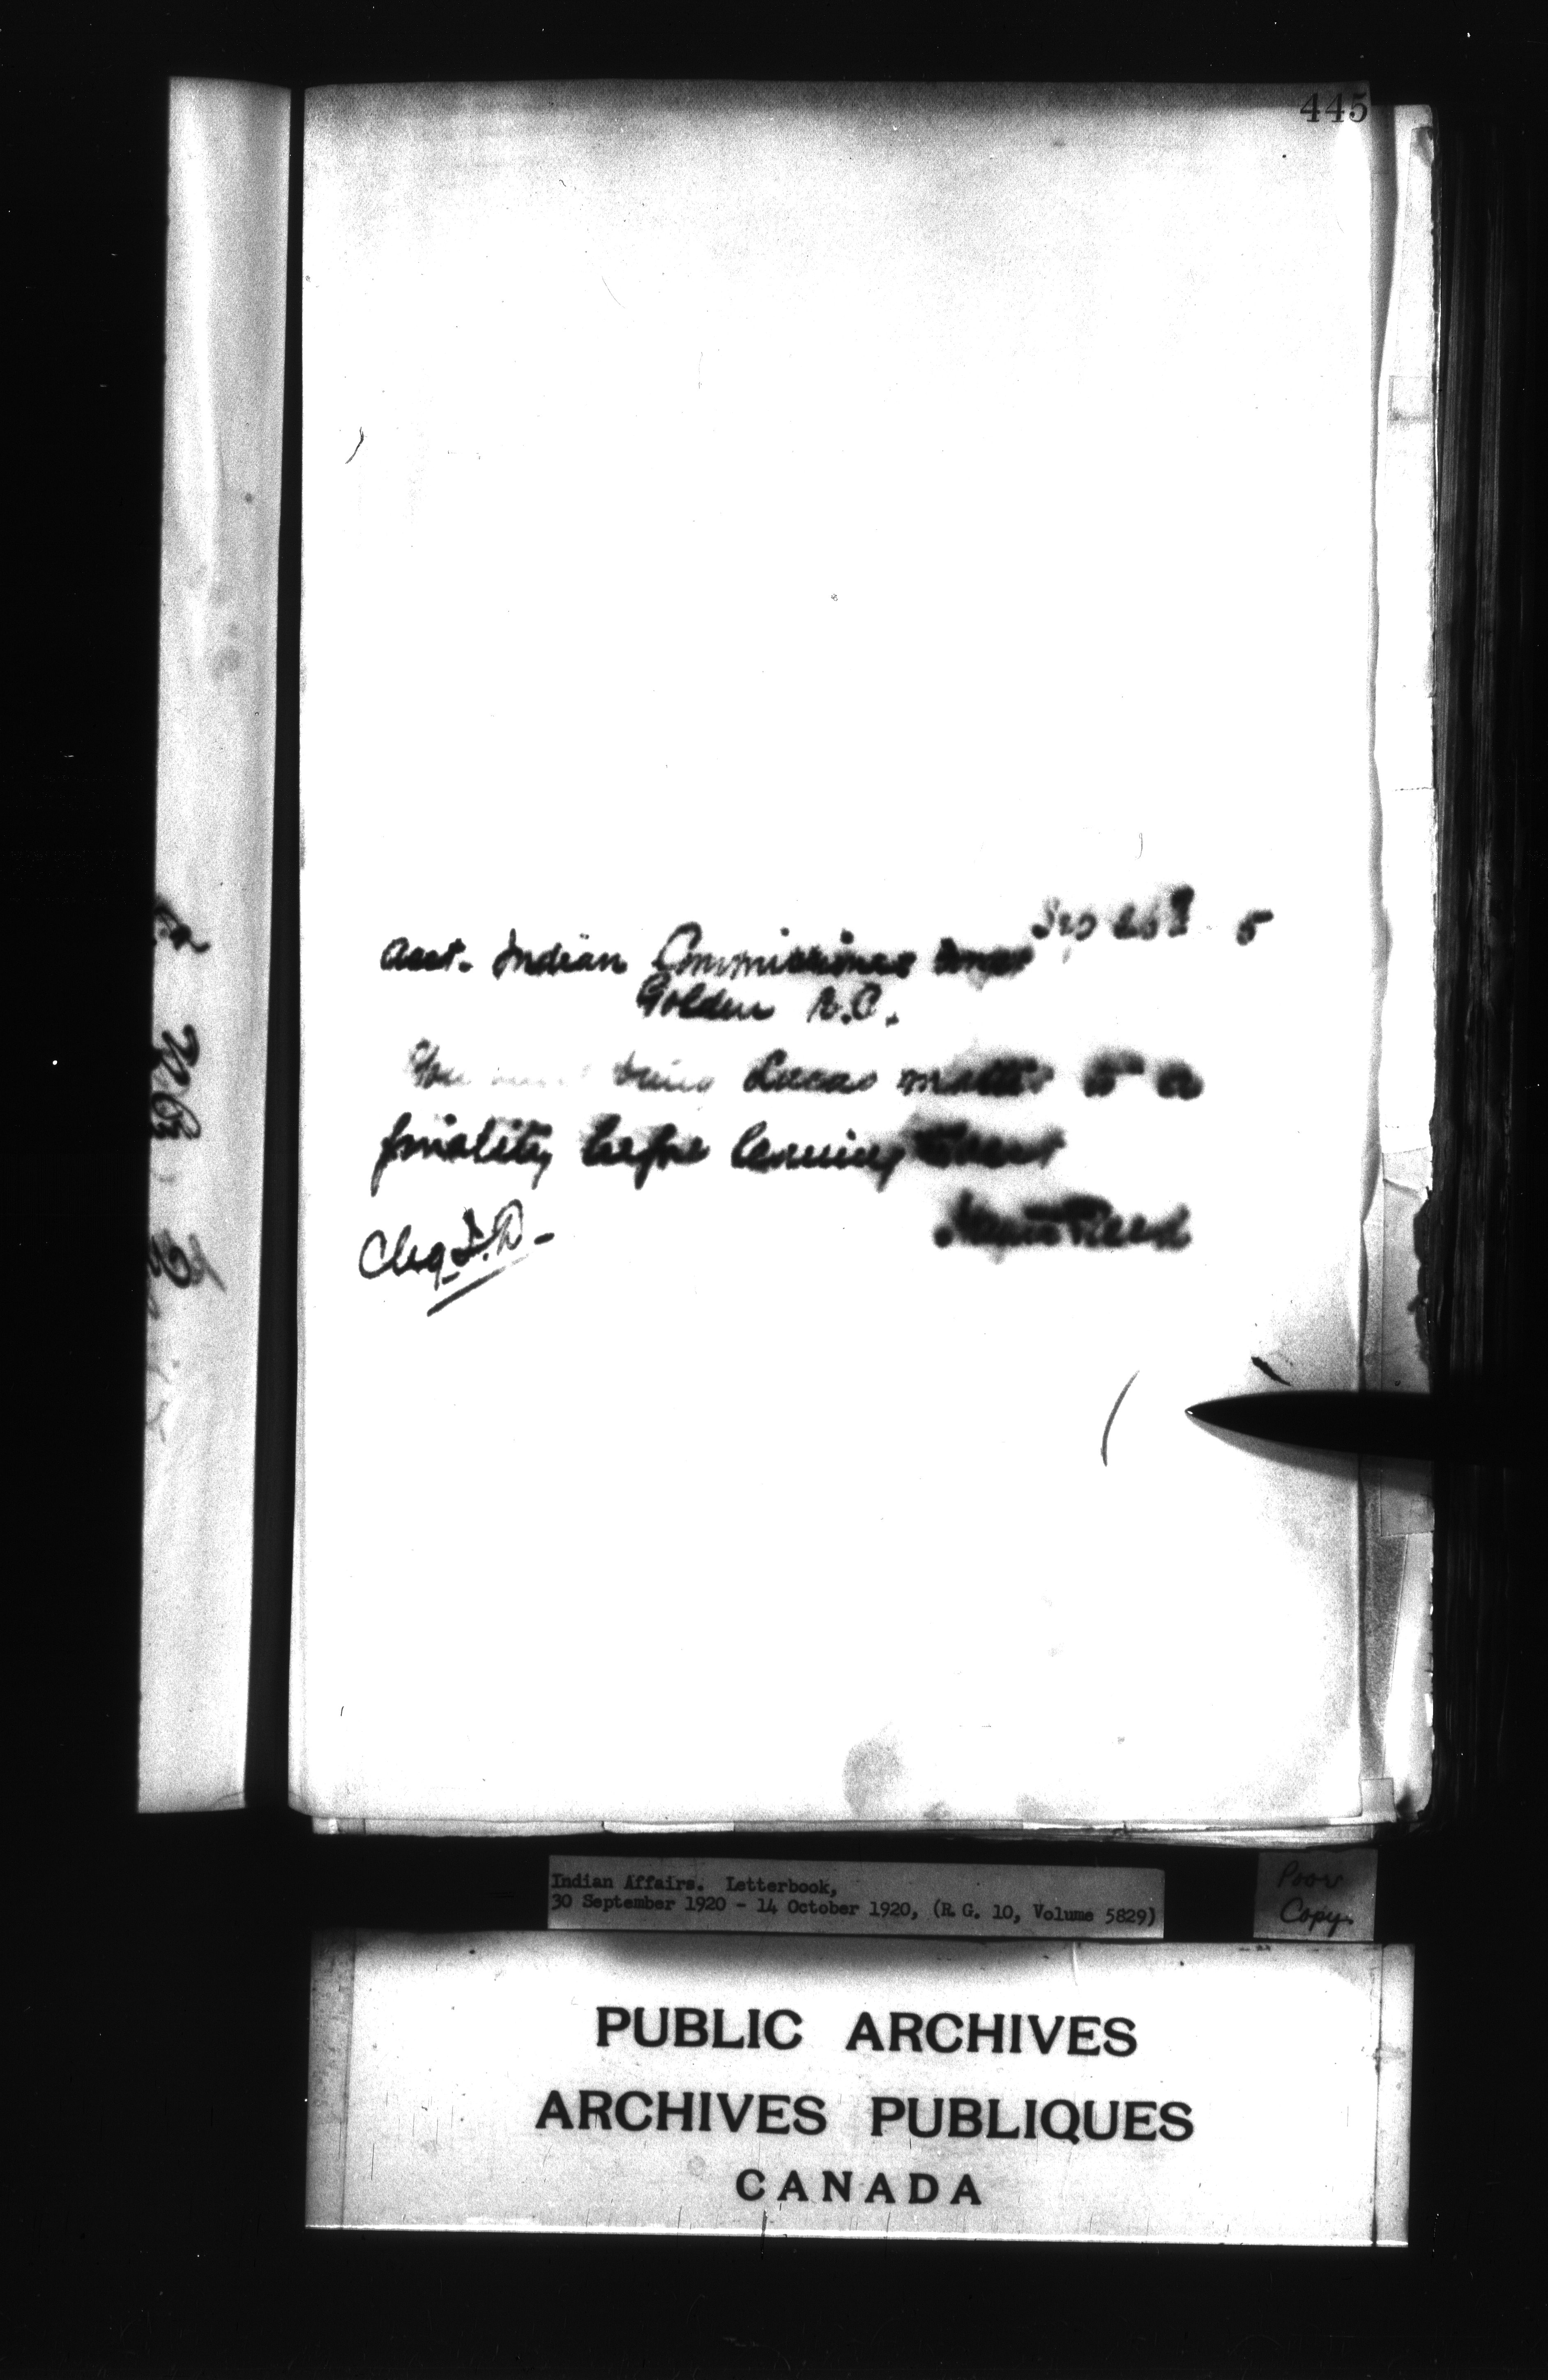 445
Sep 5
Asst. Indian Commissioner
Golden B.C.
You being Lucas matter to a
finality before leaving
Chg. I.D.-
Indian Affairs. Letterbook,
30 September 1920 - 14 October 1920, (R.G. 10, Volume 5829)
Poor
Copy.
PUBLIC ARCHIVES
ARCHIVES PUBLIQUES
CANADA